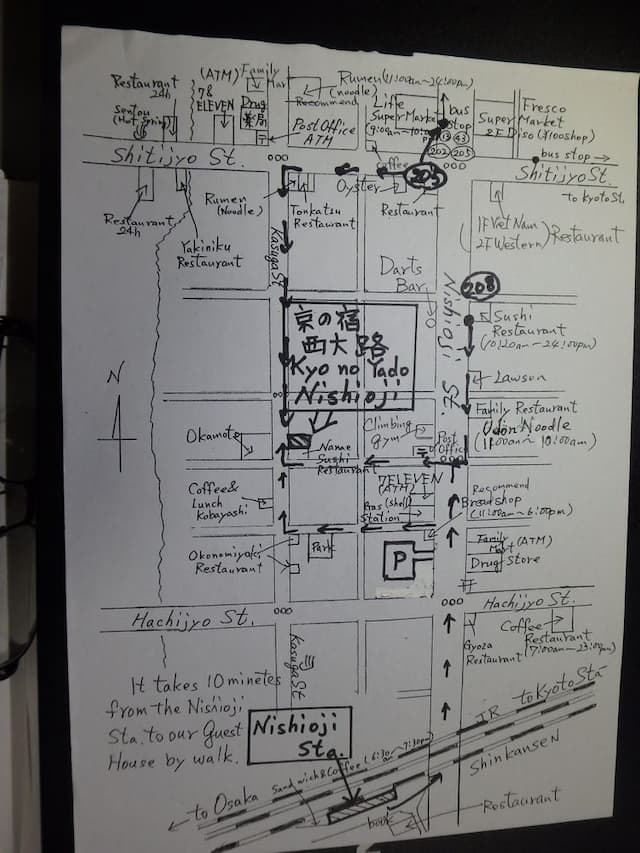 Restaurant
24h
Sentou
(Hot Spring)
(ATM)
7&
ELEVEN
Family
Mart
Drug
薬局
〒
Post Office
ATM
Recommend
Rumen(11:00am~24:00pm)
(noodle)
Life
Super Market
bus
stop
13
43
202
205
Super
Market
Fresco
2F Diso(¥100shop)
bus stop →
Shitijyo St.
Shitijyo St.
to Kyoto St.
coffee
205
Oyster
Restaurant
Restaurant
24h
Yakiniku
Restaurant
Rumen
(Noodle)
Tonkatsu
Restaurant
Kasuga St
1F Viet Nam
2F Western
Restaurant
Darts
Bar
Nishioji St.
208
Sushi
Restaurant
京の宿
西大路
Kyo no Yado
Nishioji
N
Lawson
Family Restaurant
Udon Noodle
(11:00am~10:00am)
Okamoto
Name
Sushi
Restaurant
Climbing
gym
Post
Office
〒
Coffee&
Lunch
Kobayashi
7ELEVEN
(ATM)
Gas (Shell)
Station
Recommend
Bread shop
(11:00am~6:00pm)
Okonomiyaki
Restaurant
Park
P
Family
Mart
(ATM)
Drug Store
Hachijyo St.
Hachijyo St.
Kasuga St
Gyoza
Restaurant
Coffee
Restaurant
(7:00am~23:00pm)
It takes 10 minetes
from the Nishioji
Sta. to our Guest
House by walk.
Nishioji
Sta.
JR
to Kyoto Sta
Shinkansen
Sandwich&Coffee
← to Osaka
book
Restaurant